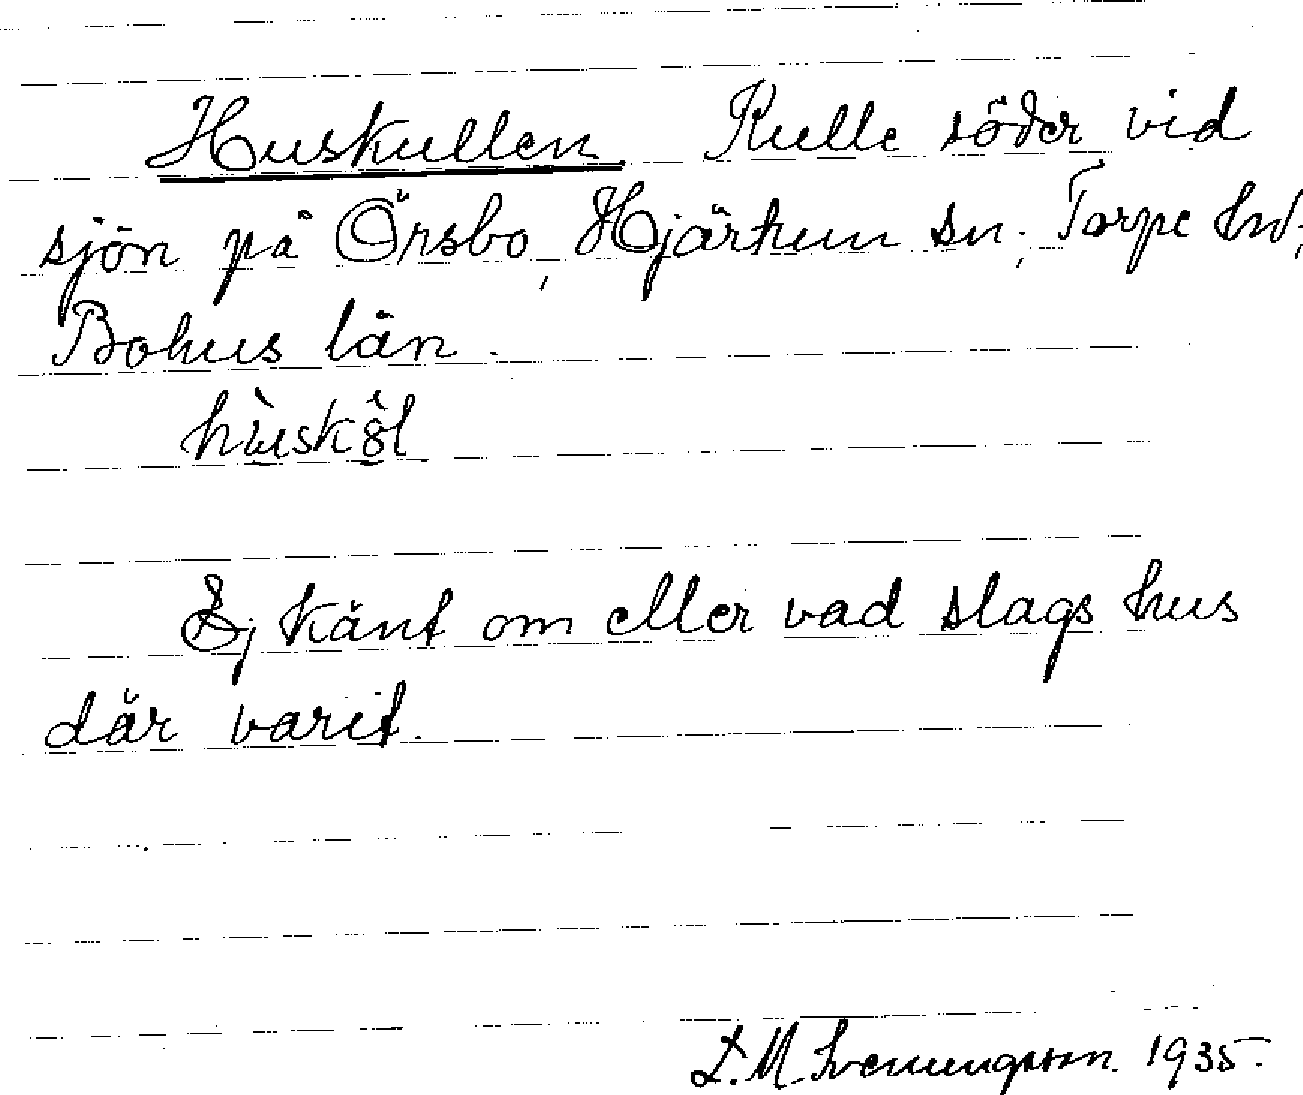 Huskullen Kulle söder vid
sjön på Örsbo, Hjärtum sn, Torpe hd,
Bohus län.
hùskô̤l
Ej känt om eller vad slags hus
där varit.
L. M. Svenungsson. 1935.